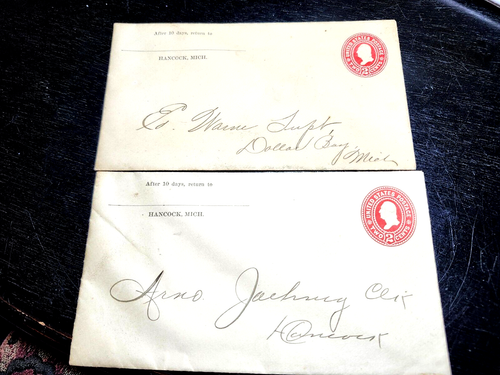 After 10 days, return to
HANCOCK, MICH.
UNITED STATES POSTAGE
2
TWO CENTS
Ed. Warne Supt,
Dollar Bay,
Mich
After 10 days, return to
HANCOCK, MICH.
UNITED STATES POSTAGE
2
TWO CENTS
Arno. Jaehnig Clk
Hancock